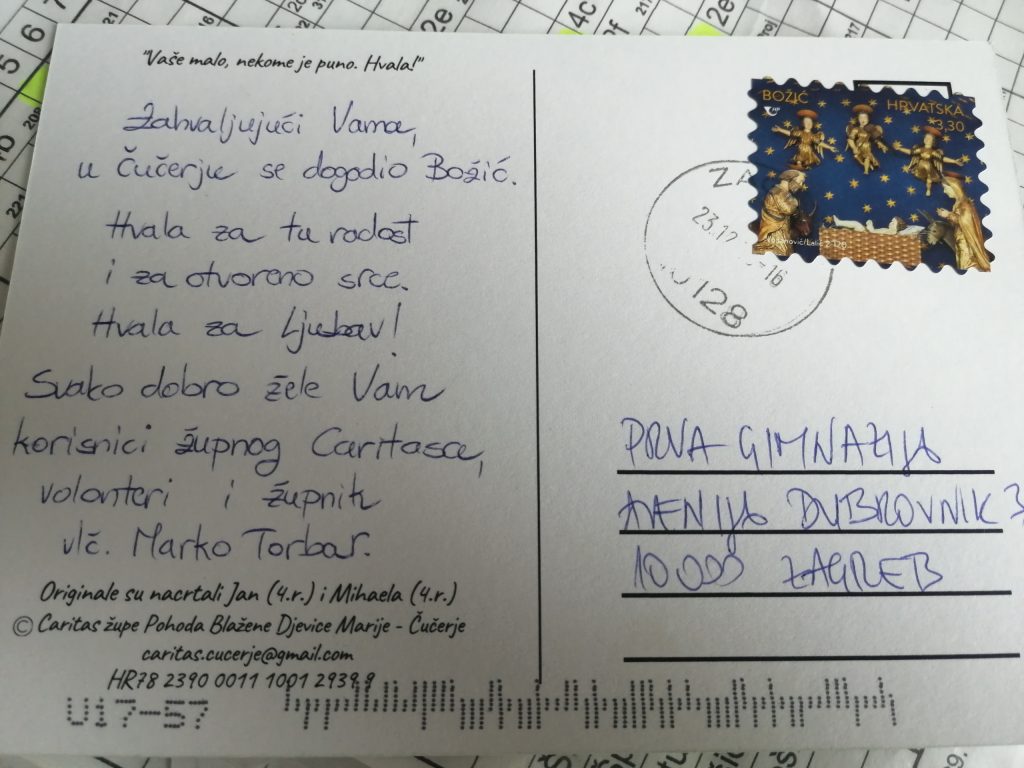 "Vaše malo, nekome je puno. Hvala!"
Zahvaljujući Vama,
u Čučerju se dogodio Božić.
Hvala za tu radost
i za otvoreno srce.
Hvala za Ljubav!
Svako dobro žele Vam
korisnici župnog Caritasa,
volonteri i župnik
vlč. Marko Torbar.
Originale su nacrtali Jan (4.r.) i Mihaela (4.r.)
© Caritas župe Pohoda Blažene Djevice Marije - Čučerje
caritas.cucerje@gmail.com
HR78 2390 0011 1001 2939 9
U17-57
BOŽIĆ
HRVATSKA
3,30
ZA
23.12
-16
10128
PRVA GIMNAZIJA
AVENIJA DUBROVNIK 3
10 000 ZAGREB